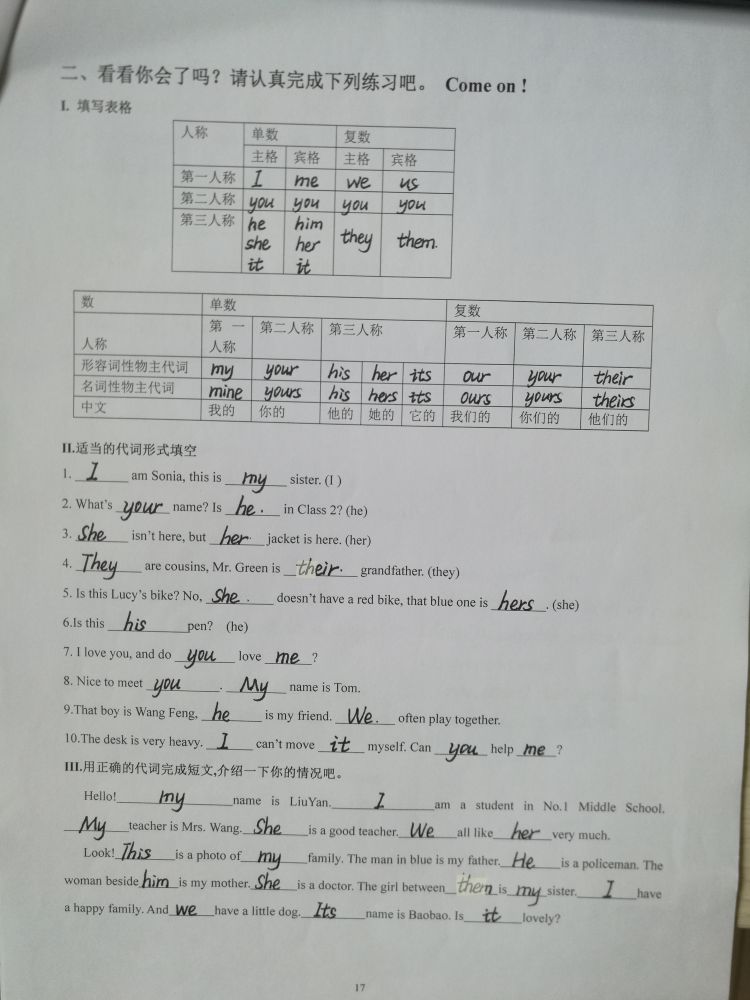 二、看看你会了吗？请认真完成下列练习吧。 Come on !
I. 填写表格
人称 单数 复数
主格 宾格 主格 宾格
第一人称 I me we us
第二人称 you you you you
第三人称 he him they them.
she her
it it
数 单数 复数
人称 第一人称 第二人称 第三人称 第一人称 第二人称 第三人称
形容词性物主代词 my your his her its our your their
名词性物主代词 mine yours his hers its ours yours theirs
中文 我的 你的 他的 她的 它的 我们的 你们的 他们的
II.适当的代词形式填空
1. I am Sonia, this is my sister. (I )
2. What's your name? Is he. in Class 2? (he)
3. She isn't here, but her. jacket is here. (her)
4. They are cousins, Mr. Green is their. grandfather. (they)
5. Is this Lucy's bike? No, She . doesn't have a red bike, that blue one is hers. (she)
6.Is this his pen? (he)
7. I love you, and do you love me ?
8. Nice to meet you . My name is Tom.
9.That boy is Wang Feng, he is my friend. We. often play together.
10.The desk is very heavy. I can't move it myself. Can you help me ?
III.用正确的代词完成短文,介绍一下你的情况吧。
Hello! my name is LiuYan. I am a student in No.1 Middle School.
My teacher is Mrs. Wang. She is a good teacher. We all like her very much.
Look! This is a photo of my family. The man in blue is my father. He is a policeman. The
woman beside him is my mother. She is a doctor. The girl between them is my sister. I have
a happy family. And we have a little dog. Its name is Baobao. Is it lovely?
17